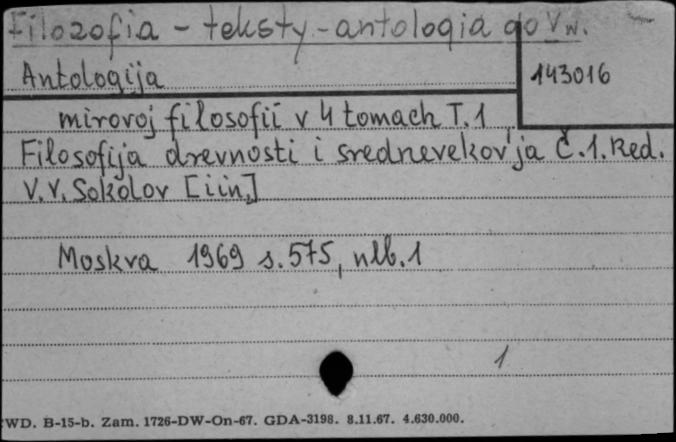 Filozofia - teksty - antologia do V w.
Antologija
143016
mirovoj filosofii v 4 tomach T.1
Filosofija drevnosti i srednevekov'ja Č.1. Red.
V.V. Sokolov [i in.]
Moskva 1969 s. 575, nlb. 1
1
WD. B-15-b. Zam. 1726-DW-On-67. GDA-3198. 8.11.67. 4.630.000.